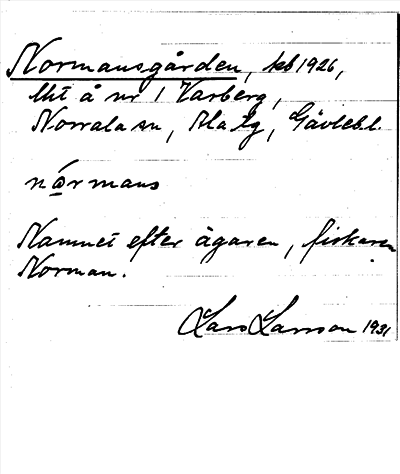 Normansgården, kb 1926,
lht å nr 1 Varberg,
Norrala sn, Ala tg, Gävleb.l.
nórmans
Namnet efter ägaren, fiskaren
Norman.
Lars Larsson 1931